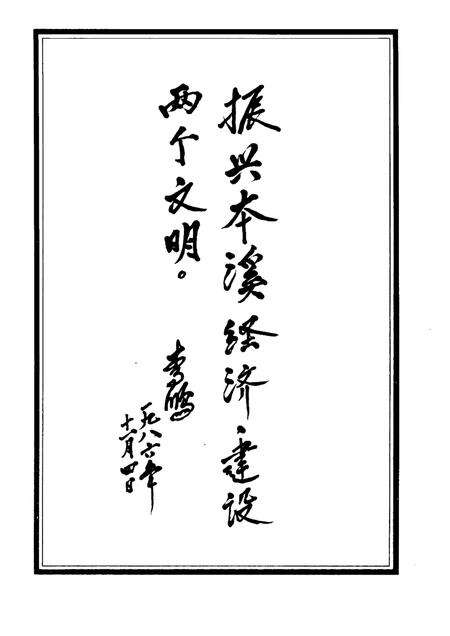 振兴本溪经济、建设
两个文明。
李鹏
一九八六年
十一月四日